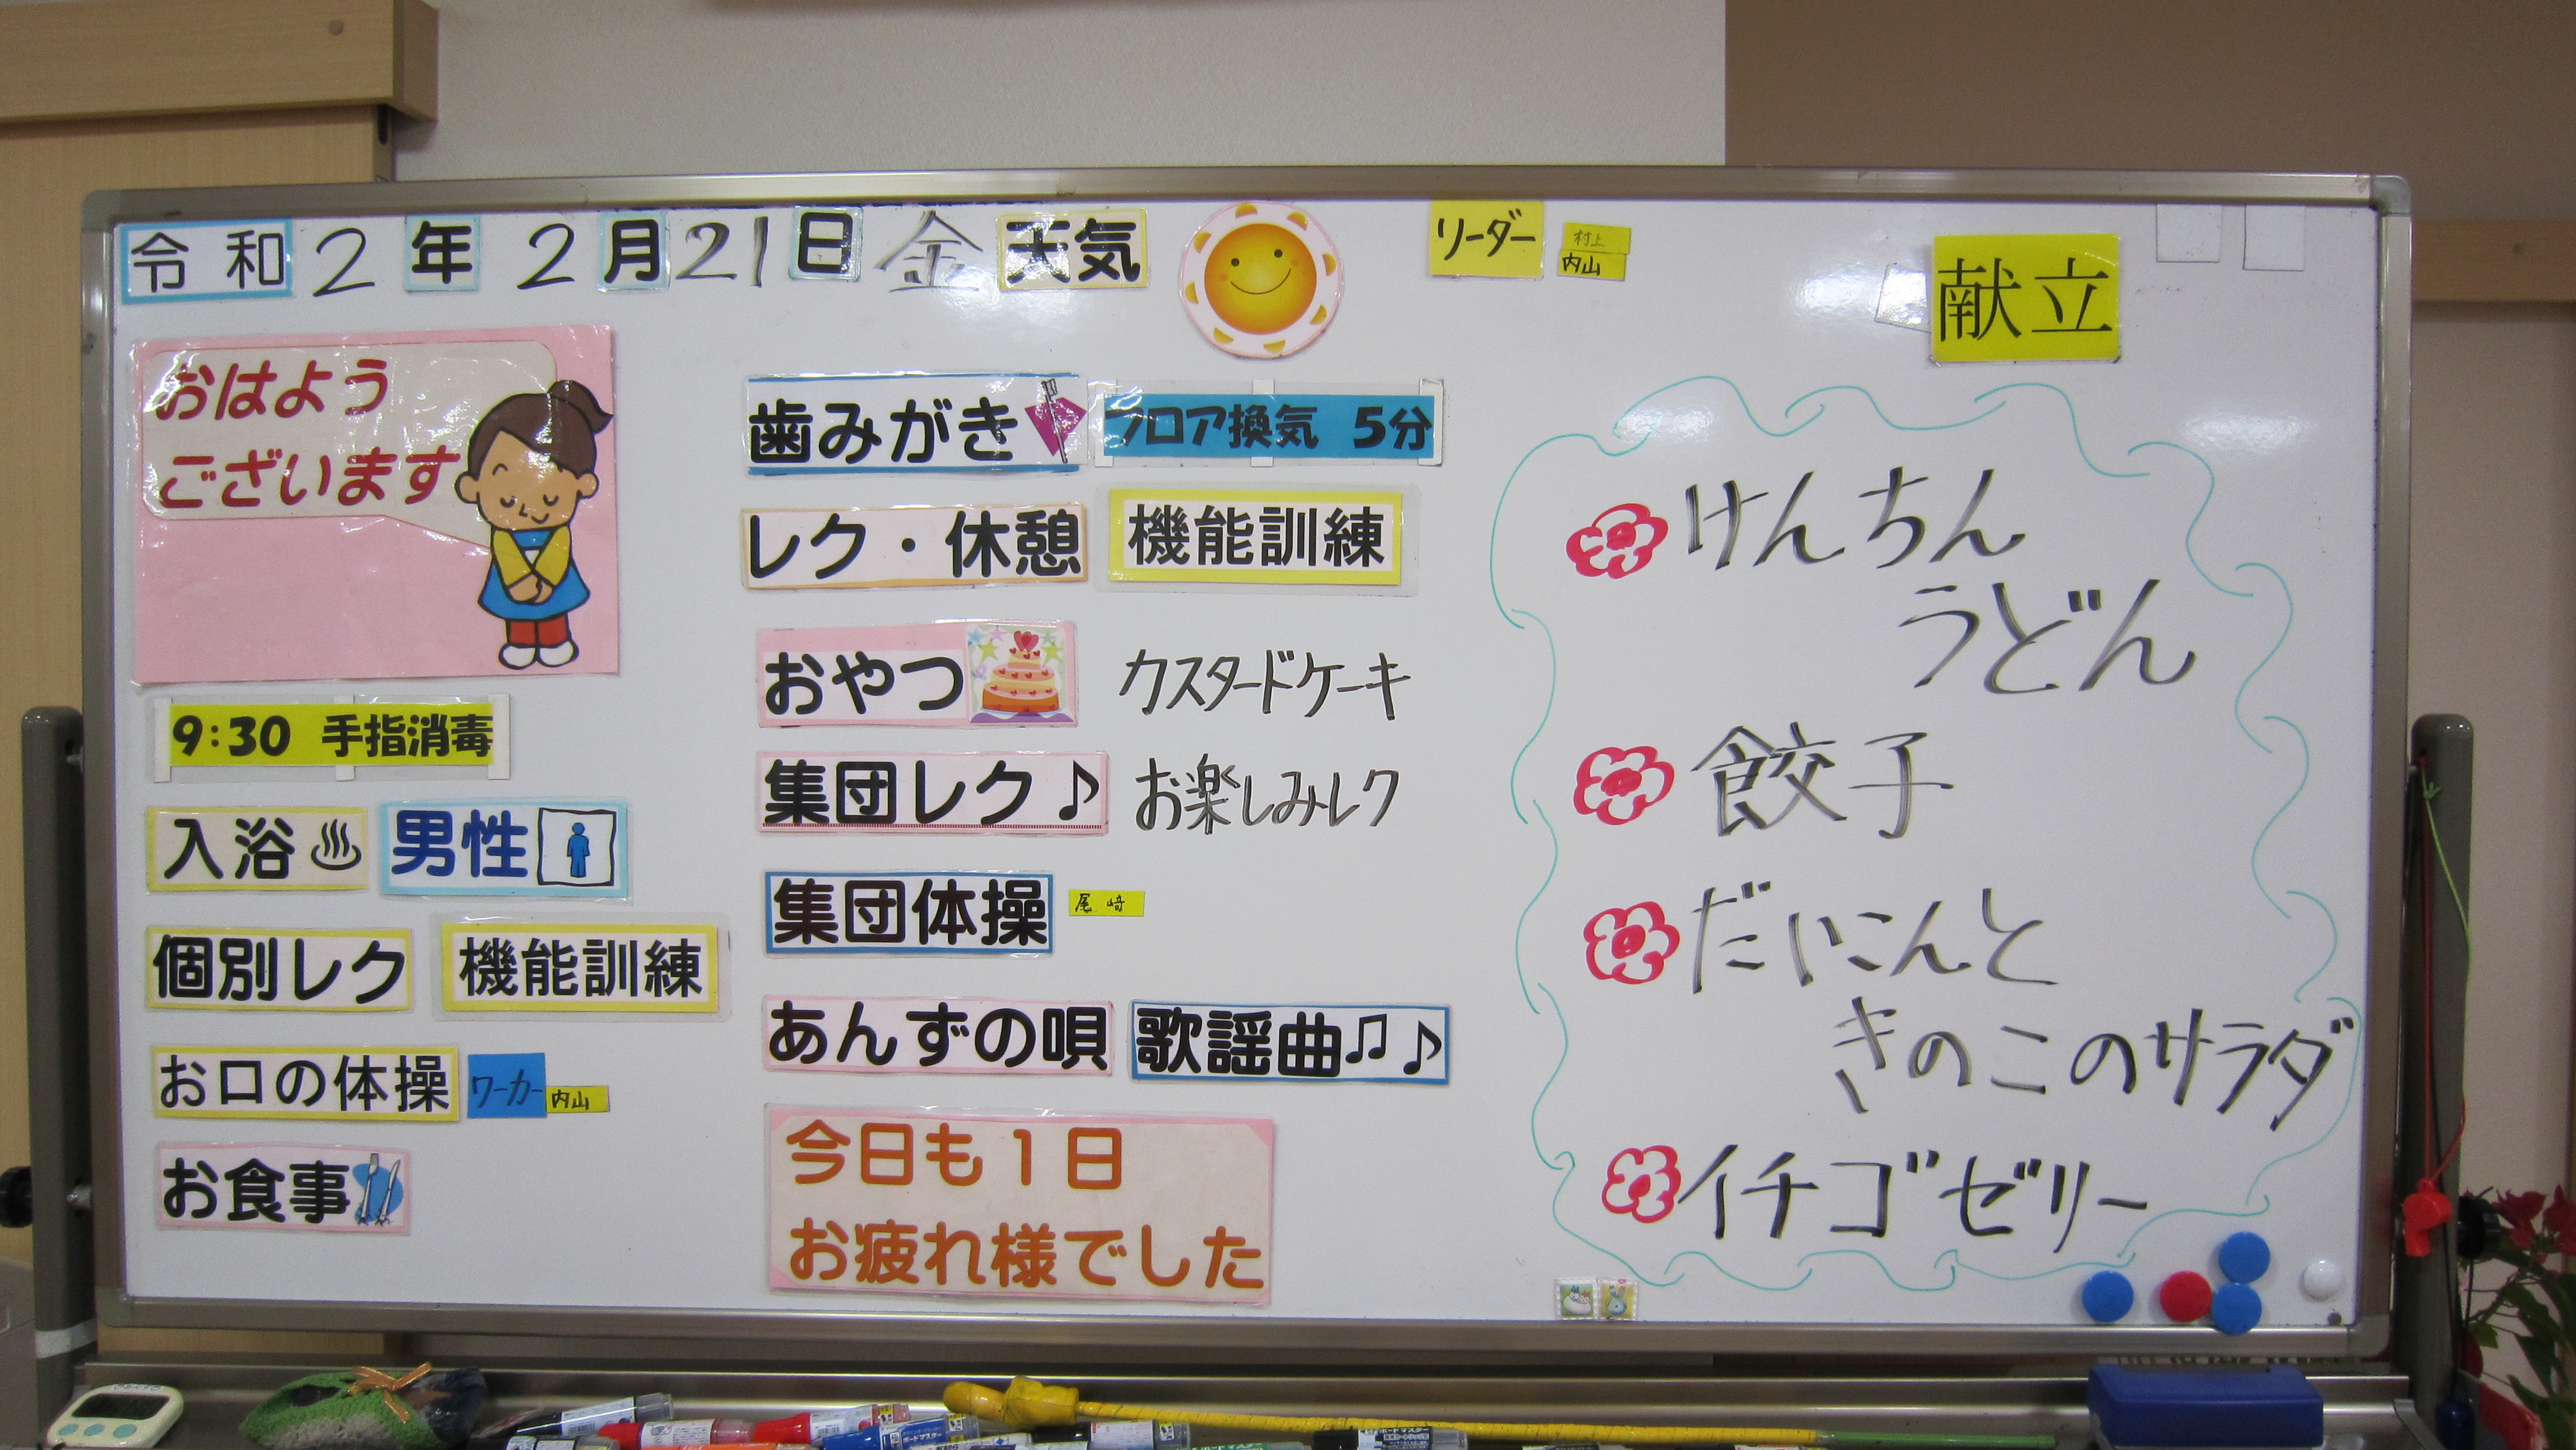 令和2年2月21日 金 天気
リーダー
村上
内山
おはよう
ございます
9:30 手指消毒
入浴 男性
個別レク 機能訓練
お口の体操 ワーカー 内山
お食事
歯みがき フロア換気 5分
レク・休憩 機能訓練
おやつ カスタードケーキ
集団レク♪ お楽しみレク
集団体操 尾﨑
あんずの唄 歌謡曲♫♪
今日も1日
お疲れ様でした
献立
けんちん
うどん
餃子
だいこんと
きのこのサラダ
イチゴゼリー